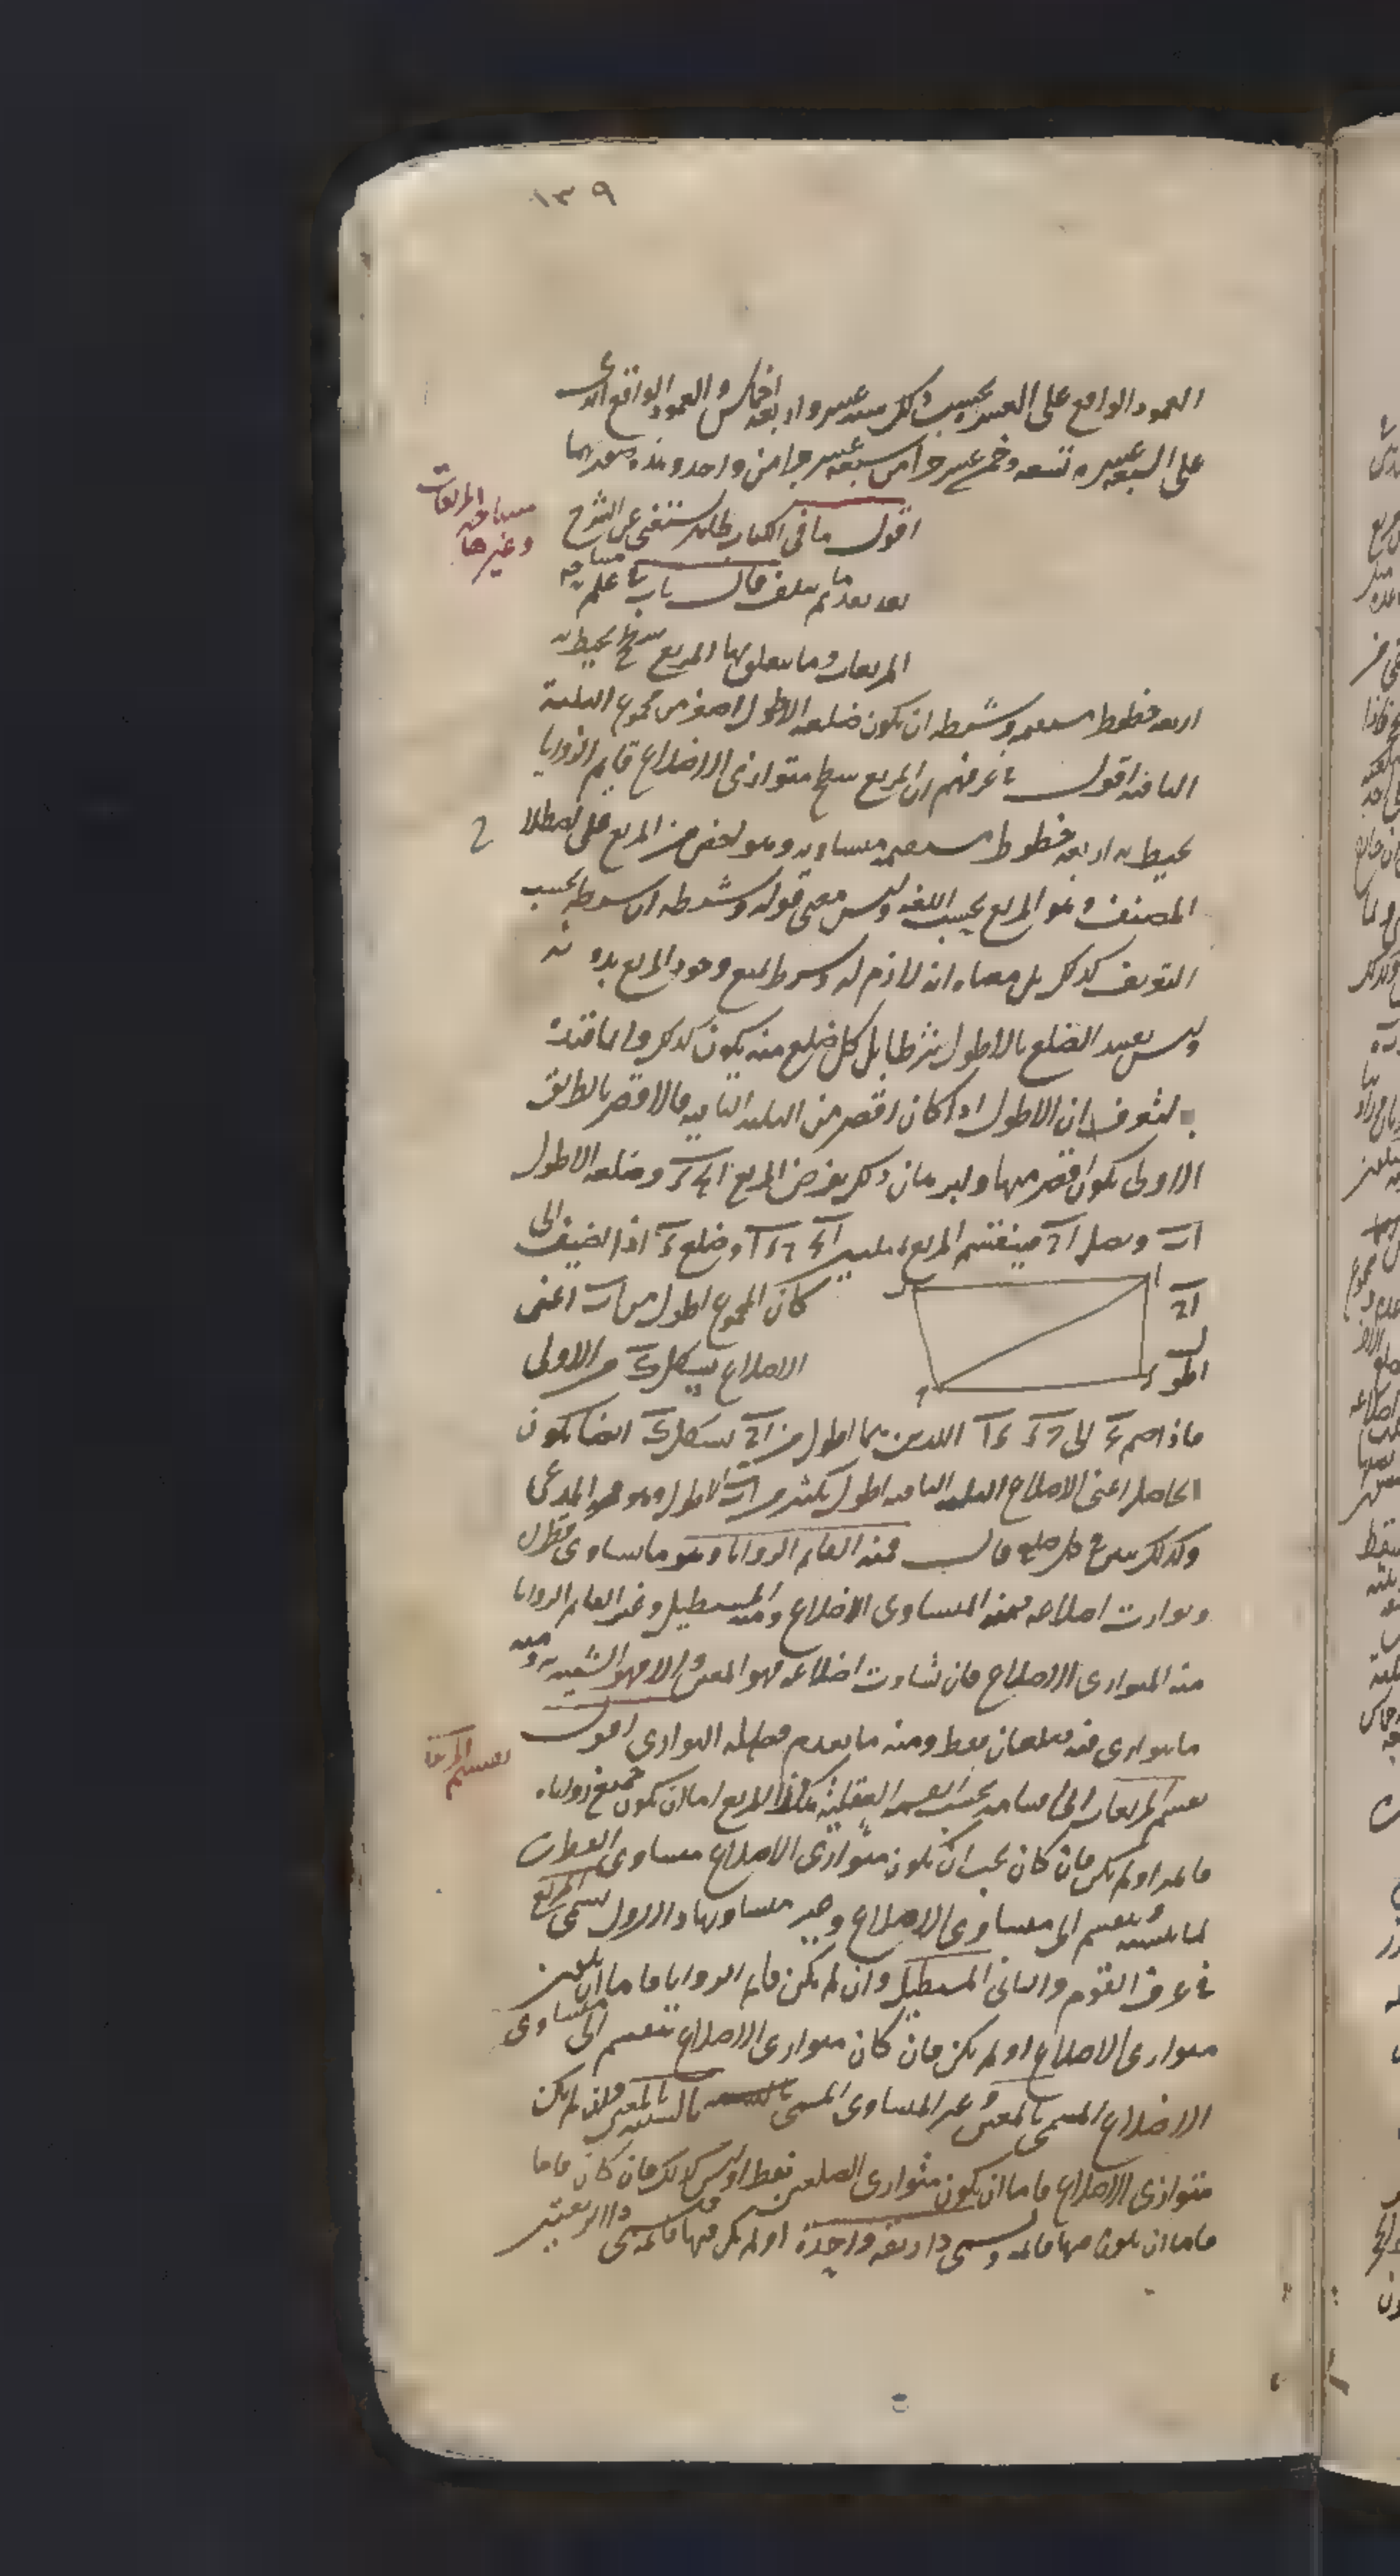 ١٣٩
العمود الواقع على العشرة بحسب ذلك ستة عشر واربعة اخماس والعمود الواقع
على السبعة عشر تسعة وخمسة عشر جزا من سبعة عشر جزا من واحد وهذه صورتها
اقول ما فى الكتاب ظاهر مستغنى عن الشرح
مساحة المربعات
وغيرها
بعد تقديم ما سلف قال باب فى علم مساحة
المربعات وما يتعلق بها المربع سطح يحيط به
اربعة خطوط مستقيمة وشرطه ان يكون ضلعه الاطول اصغر من مجموع الثلثة
الباقية اقول فى عرفهم ان المربع سطح متوازى الاضلاع قايم الزوايا
يحيط به اربعة خطوط مستقيمة متساوية وهو اخص من المربع على اصطلا ح
المصنف وهو المربع بحسب اللغة وليس معنى قوله وشرطه ان شرطه بحسب
التعريف كذلك بل معناه انه لازم له وشرط يمتنع وجود المربع بدو نه
وليس تقييد الضلع بالاطول شرطا بل كل ضلع منه يكون كذلك وانما قيده
به لتعرف ان الاطول اذا كان اقصر من الثلثة الباقية فالاقصر بالطريق
الاولى يكون اقصر منها ولبرهان ذلك يفرض المربع ا ب ج د وضلعه الاطول
اب ونصل اج فينقسم المربع بمثلثين وضلع اذا اضيف الى
اج كان المجموع اطول من اب اعنى
اطول الاضلاع بشكل ك من الاولى
فاذا ضم الى ج د د ا اللذين هما اطول من اج بشكل ك ايضا يكون
الحاصل اعنى الاضلاع الثلثة الباقية اطول بكثير من اب الاطول وهو المدعى
وكذلك فى كل ضلع قال فمنه القايم الزوايا وهو ما تساوى قطراه
وتوازت اضلاعه فمنه المتساوى الاضلاع ومنه المستطيل وغير القايم الزوايا
منه المتوازى الاضلاع فان تساوت اضلاعه فهو المعين والا فهو الشبيه به ومنه
ما يتوازى منه ضلعان فقط ومنه ما يعدم التوازى اقول
تقسيم المربعات
تقسيم المربعات الى اقسامه بحسب القسمة العقلية هكذا المربع اما ان يكون جميع زواياه
قائمة او لم يكن فان كان يجب ان يكون متوازى الاضلاع متساوى القطرين
وينقسم الى متساوى الاضلاع وغير متساويها والاول يسمى المربع
فى عرف القوم والثانى المستطيل وان لم يكن قايم الزوايا فاما ان يكون
متوازى الاضلاع او لم يكن فان كان متوازى الاضلاع ينقسم الى متساوى
الاضلاع المسمى بالمعين وغير المتساوى المسمى بالشبيه بالمعين وان لم يكن
متوازى الاضلاع فاما ان يكون متوازى الضلعين فقط او ليس كذلك فان كان
فاما ان يكون فيها قائمة ويسمى ذا زنقة واحدة او لم يكن فيها قائمة يسمى ذا الزنقتين